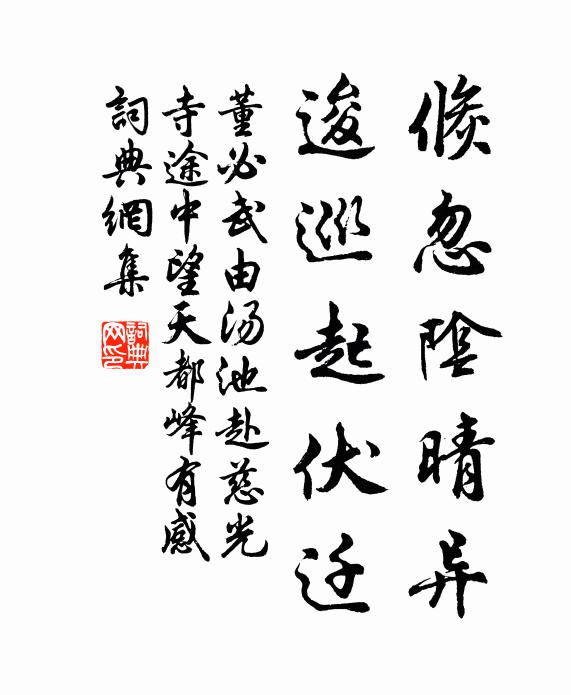 倏忽陰晴异
逡巡起伏迁
董必武由汤池赴慈光
寺途中望天都峰有感
詞典網集
詞典网印